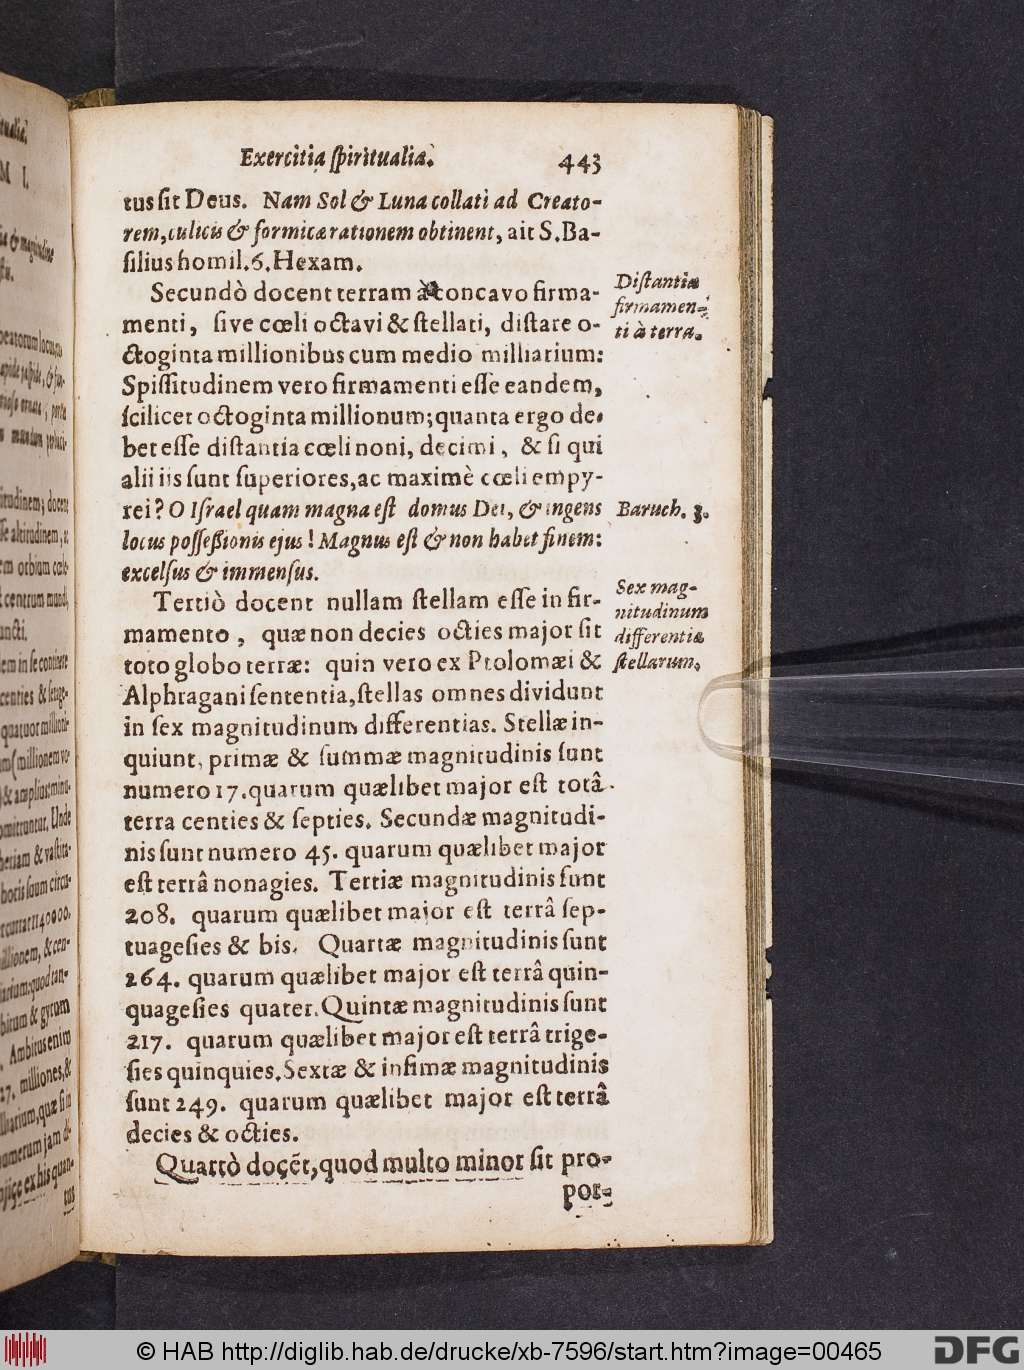 Exercitia spiritualia. 443
tus sit Deus. Nam Sol & Luna collati ad Creato-
rem, culicis & formicæ rationem obtinent, ait S. Ba-
silius homil. 6. Hexam.
Secundò docent terram à concavo firma-
menti, sive cœli octavi & stellati, distare o-
ctoginta millionibus cum medio milliarium:
Spissitudinem vero firmamenti esse eandem,
scilicet octoginta millionum; quanta ergo de-
bet esse distantia cœli noni, decimi, & si qui
alii iis sunt superiores, ac maximè cœli empy-
rei? O Israel quam magna est domus Dei, & ingens
locus possessionis ejus! Magnus est & non habet finem:
excelsus & immensus.
Tertiò docent nullam stellam esse in fir-
mamento, quæ non decies octies major sit
toto globo terræ: quin vero ex Ptolomæi &
Alphragani sententia, stellas omnes dividunt
in sex magnitudinum differentias. Stellæ in-
quiunt, primæ & summæ magnitudinis sunt
numero 17. quarum quælibet major est totâ
terra centies & septies. Secundæ magnitudi-
nis sunt numero 45. quarum quælibet major
est terrâ nonagies. Tertiæ magnitudinis sunt
208. quarum quælibet major est terrâ sep-
tuagesies & bis. Quartæ magnitudinis sunt
264. quarum quælibet major est terrâ quin-
quagesies quater. Quintæ magnitudinis sunt
217. quarum quælibet major est terrâ trige-
sies quinquies. Sextæ & infimæ magnitudinis
sunt 249. quarum quælibet major est terrâ
decies & octies.
Quartò docẽt, quod multo minor sit pro-
por-
Distantia
firmamen-
ti à terra.
Baruch. 3.
Sex mag-
nitudinum
differentiæ
stellarum.
© HAB http://diglib.hab.de/drucke/xb-7596/start.htm?image=00465
DFG